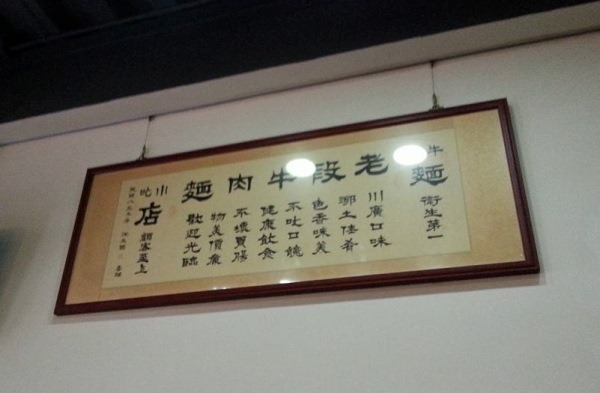 牛麵
衛生第一
老段牛肉麵
川廣口味
鄉土佳肴
色香味美
不吐口饒
健康飲食
不壞胃腸
物美價廉
歡迎光臨
小吃店
顧客至上